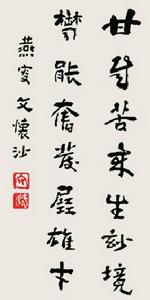 甘苦來生妙境
鬱能奮發展雄才
燕叟文懷沙